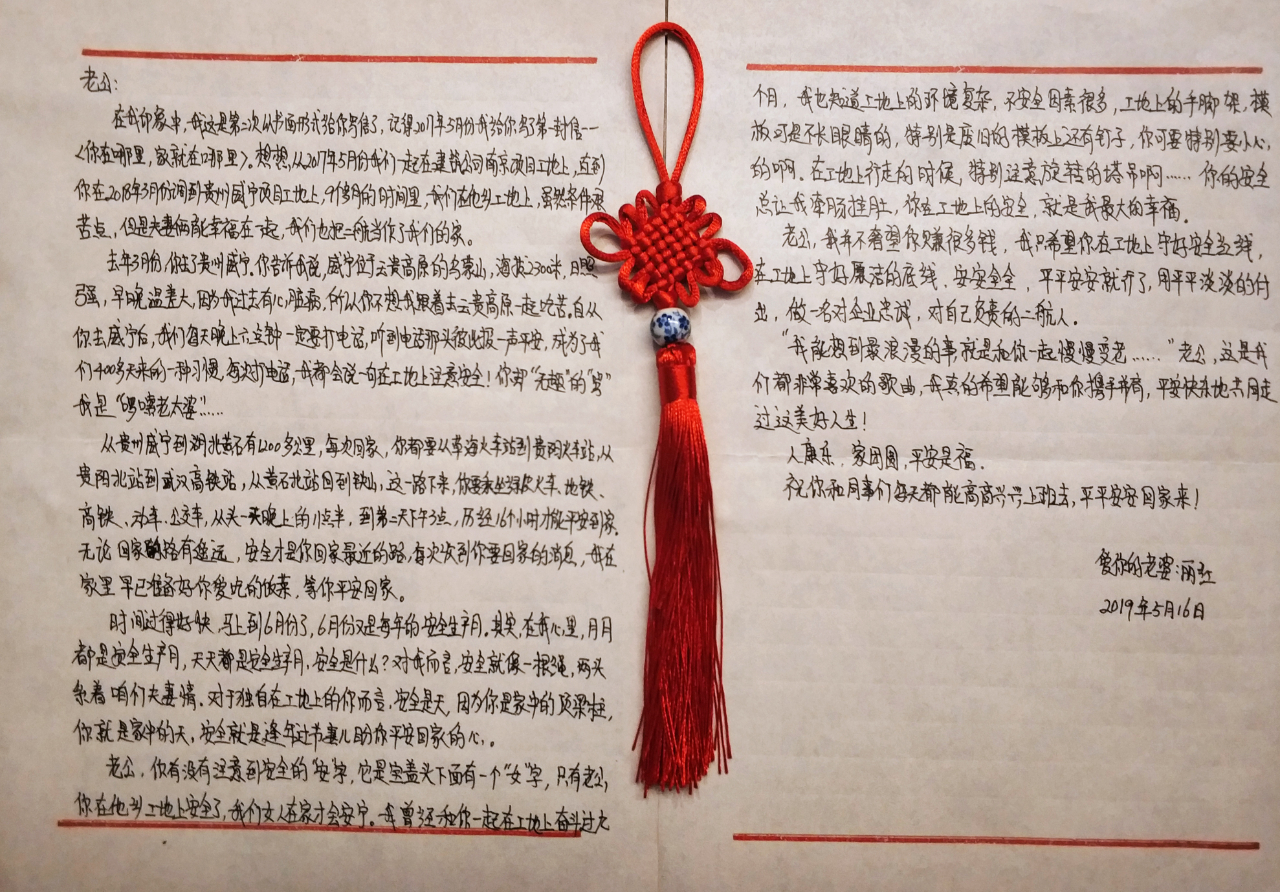 老公:
在我印象中,我这是第二次以书面形式给你写信了,记得2017年5月份我给你写了第一封信--
《你在哪里,家就在哪里》。想想,从2017年5月份我们一起在建筑公司南京项目工地上,直到
你在2018年3月份调到贵州威宁项目工地上,9个多月的时间里,我们在他乡工地上,虽然条件艰
苦点,但是夫妻俩能幸福在一起,我们也把二航当作了我们的家。
去年3月份,你去了贵州威宁。你告诉我说,威宁位于云贵高原的乌蒙山,海拔2300米,日照
强,早晚温差大,因为我过去有心脏病,所以你不想我跟着去云贵高原一起吃苦。自从
你去威宁后,我们每天晚上六点钟一定要打电话,听到电话那头彼此报一声平安,成为了我
们400多天来的一种习惯,每次打电话,我都会说一句在工地上注意安全!你却"无趣"的"骂"
我是"啰嗦老太婆"……
从贵州威宁到湖北黄石有1200多公里,每次回家,你都要从草海火车站到贵阳火车站,从
贵阳北站到武汉高铁站,从黄石北站回到铁山,这一路下来,你要乘坐绿皮火车、地铁、
高铁、动车、公交车,从头一天晚上的11点半,到第二天下午3点,历经16个小时才能平安到家。
无论回家的路有遥远,安全才是你回家最近的路,每次收到你要回家的消息,我在
家里早已准备好你爱吃的饭菜,等你平安回家。
时间过得好快,马上到6月份了,6月份又是每年的安全生产月。其实,在我心里,月月
都是安全生产月,天天都是安全生产月,安全是什么?对我而言,安全就像一根绳,两头
系着咱们夫妻情。对于独自在工地上的你而言,安全是天,因为你是家中的顶梁柱,
你就是家中的天,安全就是逢年过节妻儿盼你平安回家的心。
老公,你有没有注意到安全的"安"字,它是宝盖头下面有一个"女"字,只有老公
你在他乡工地上安全了,我们女人在家才会安宁。我曾经和你一起在工地上奋斗过九
个月,我也知道工地上的环境复杂,不安全因素很多,工地上的手脚架,模
板可是不长眼睛的,特别是废旧的模板上还有钉子,你可要特别要小心
的啊。在工地行走的时候,特别注意旋转的塔吊啊……你的安全
总让我牵肠挂肚,你在工地上的安全,就是我最大的幸福。
老公,我并不奢望你只赚很多钱,我只希望你在工地上守好安全红线,
在工地上守好廉洁的底线、安安全全,平平安安就行了,用平平淡淡的付
出,做一名对企业忠诚,对自己负责的二航人。
"我能想到最浪漫的事就是和你一起慢慢变老……"老公,这是我
们都非常喜欢的歌曲,我真的希望能够和你携手并肩,平安快乐地共同走
过这美好人生!
人康乐,家团圆,平安是福。
祝你和同事们每天都能高高兴兴上班去,平平安安回家来!
爱你的老婆:丽红
2019年5月16日